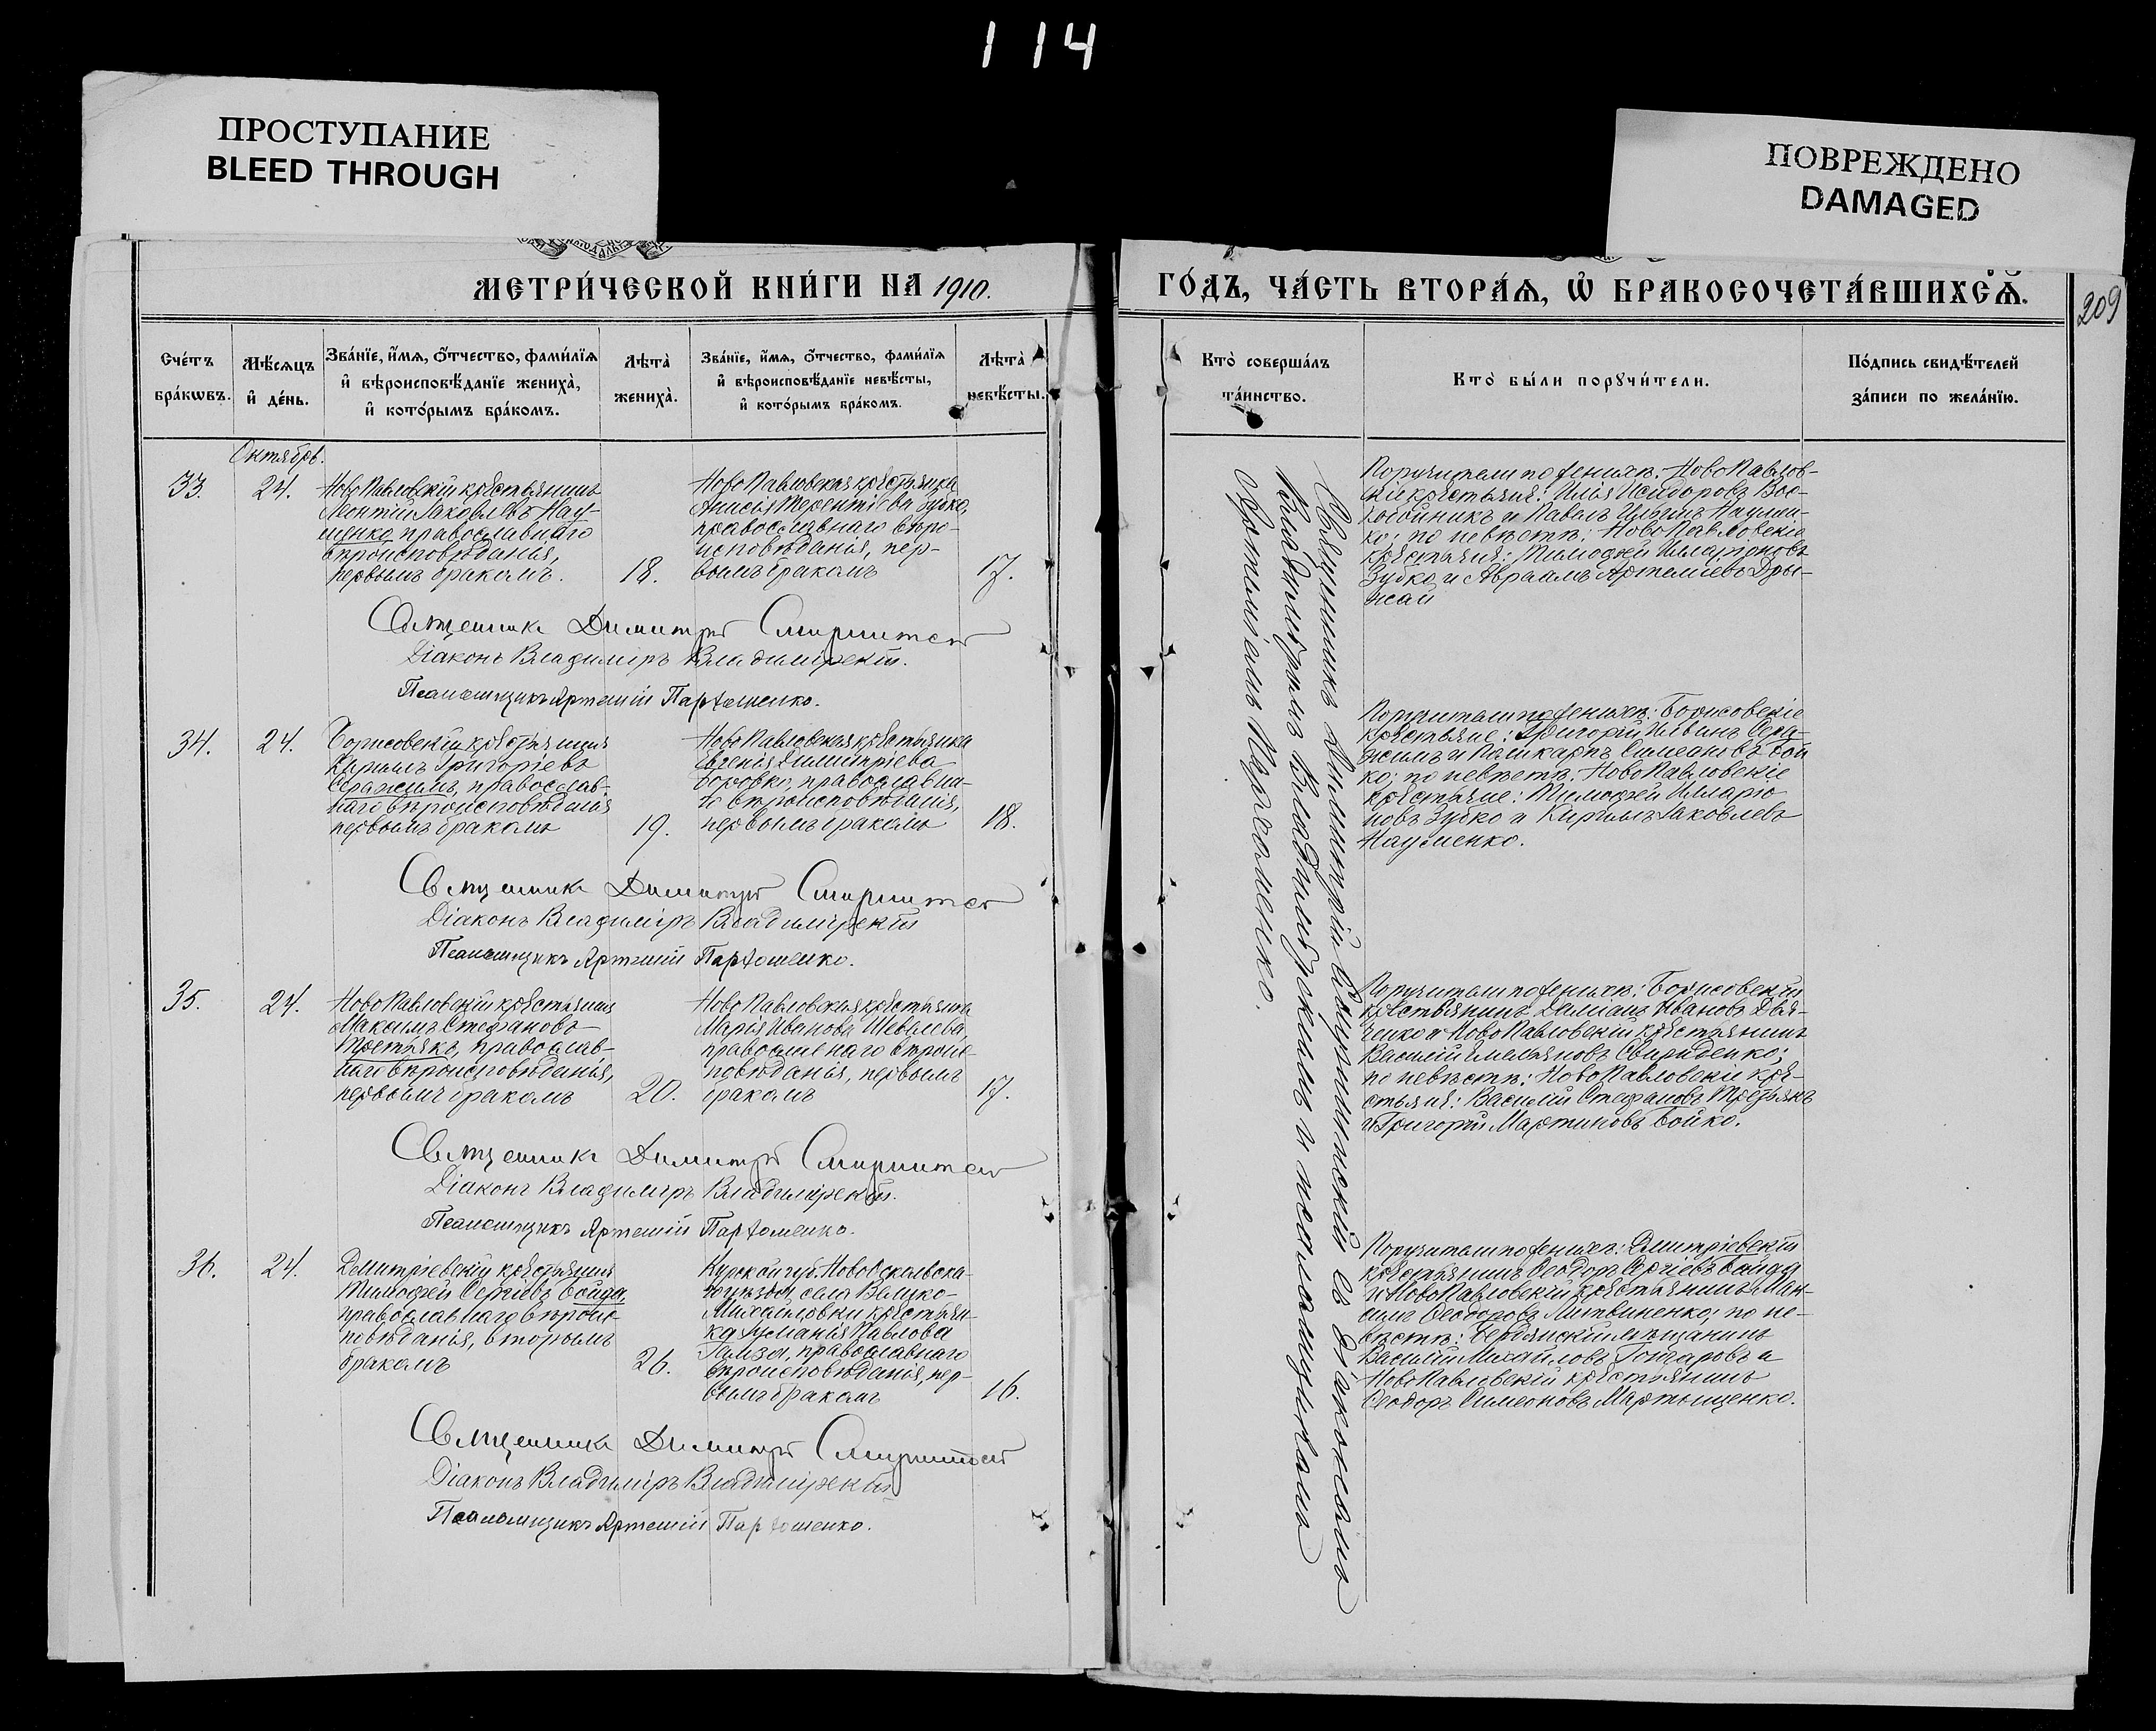 114
ПРОСТУПАНИЕ
BLEED THROUGH
ПОВРЕЖДЕНО
DAMAGED
МЕТРИ́ЧЕСКОЙ КНИ́ГИ НА 1910.
ГО́ДЪ, ЧА́СТЬ ВТОРА́Ѧ, Ѽ БРАКОСОЧЕТА́ВШИХСѦ.
209
Сче́тъ
бра́кѡвъ.
Мѣ́сѧцъ
и҆ де́нь.
Зва́нїе, и҆́мѧ, ѻ҆́тчество, фами́лїѧ
и҆ вѣроисповѣ́данїе жениха̀,
и҆ кото́рымъ бра́комъ.
Лѣта̀
жениха̀.
Зва́нїе, и҆́мѧ, ѻ҆́тчество, фами́лїѧ
и҆ вѣроисповѣ́данїе невѣ́сты,
и҆ кото́рымъ бра́комъ.
Лѣта̀
невѣ́сты.
Кто̀ соверша́лъ
та́инство.
Кто̀ бы́ли порꙋчи́тели.
По́дпись свидѣ́телей
за́писи по жела́нїю.
Октябрь.
33.
24.
Ново Павловскій крестьянинъ
Леонтій Іаковлевъ Нау-
менко православнаго
вѣроисповѣданія,
первымъ бракомъ.
18.
Ново Павловская крестьянка
Анисія Терентіева Зубко,
православнаго вѣро-
исповѣданія, пер-
вымъ бракомъ
17.
Поручители по женихѣ: Ново Павлов-
скіе крестьяне: Илія Исидоровъ
и Павелъ Ильинъ Наумен-
ко; по невѣстѣ: Ново Павловскіе
крестьяне: Тимофей Иларіоновъ
Зубко и Авраамъ Артеміевъ
Священникъ Димитрій
Діаконъ Владиміръ Владимірскій.
Псаломщикъ Артемій Пархоменко.
34.
24.
Борисовскій крестьянинъ
Кириллъ Григоріевъ
Серажимъ, православ-
наго вѣроисповѣданія
первымъ бракомъ
19.
Ново Павловская крестьянка
Евгенія Димитріева
Боровко, православна-
го вѣроисповѣданія,
первымъ бракомъ
18.
Поручители по женихѣ: Борисовскіе
крестьяне: Григорій Ильинъ Сера-
жимъ и Поликарпъ Симеоновъ Бой
ко; по невѣстѣ: Ново Павловскіе
крестьяне: Тимофей Иларіо
новъ Зубко и Кириллъ Іаковлевъ
Науменко.
Священникъ Димитрій
Діаконъ Владиміръ Владимірскій
Псаломщикъ Артемій Пархоменко.
35.
24.
Ново Павловскій крестьянинъ
Максимъ Стефановъ
Третьякъ, православ-
наго вѣроисповѣданія,
первымъ бракомъ
20.
Ново Павловская крестьянка
Марія Иванова Шевелева,
православнаго вѣроис-
повѣданія, первымъ
бракомъ
17.
Поручители по женихѣ: Борисовскій
крестьянинъ Даміанъ Ивановъ Дья-
ченко и Ново Павловскій крестьянинъ
Василій Емельяновъ Свириденко;
по невѣстѣ: Ново Павловскіе кре-
стьяне: Василій Стефановъ Третьякъ
и Григорій Мартиновъ Бойко.
Священникъ Димитрій
Діаконъ Владиміръ Владимірскій.
Псаломщикъ Артемій Пархоменко.
36.
24.
Дмитріевскій крестьянинъ
Тимофей Сергіевъ Бойда,
православнаго вѣроис-
повѣданія, вторымъ
бракомъ
26.
Курской губ. Новооскольска-
го уѣзда, села Велико-
Михайловки крестьян-
ка Павлова
православнаго
вѣроисповѣданія, пер-
вымъ бракомъ
16.
Поручители по женихѣ: Дмитріевскій
крестьянинъ Феодоръ Сергіевъ Бойда
и Ново Павловскій крестьянинъ Мак-
симъ Феодоровъ Литвиненко; по не-
вѣстѣ: Бердянскій мѣщанинъ
Василій Михайловъ Гончаровъ и
Ново Павловскій крестьянинъ
Феодоръ Симеоновъ Мартыщенко.
Священникъ Димитрій
Діаконъ Владиміръ Владимірскій
Псаломщикъ Артемій Пархоменко.
Священникъ Димитрій съ діакономъ
Владиміромъ Владимірскимъ и псаломщикомъ
Артеміемъ Пархоменко.